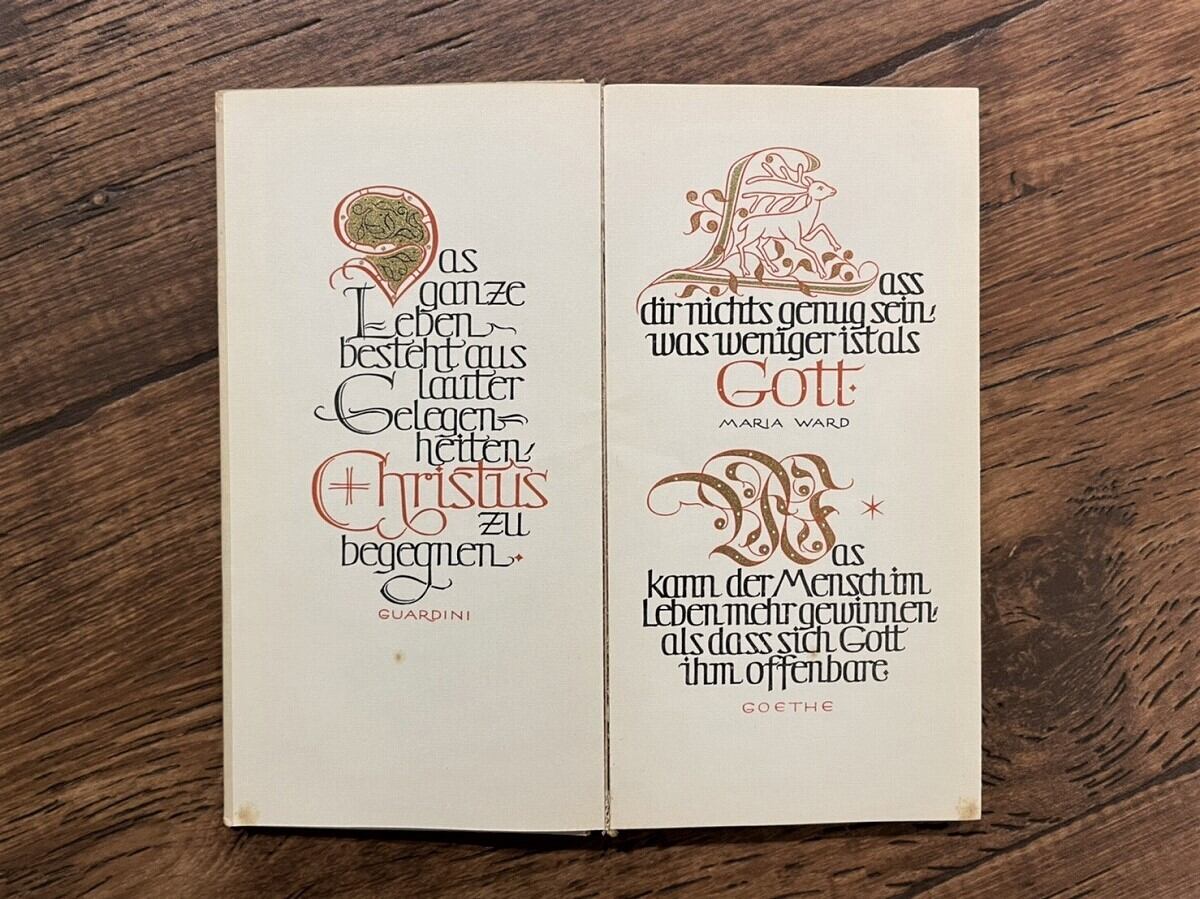 Das
ganze
Leben
besteht aus
lauter
Gelegen-
heiten,
Christus
zu
begegnen.
GUARDINI
Lass
dir nichts genug sein,
was weniger ist als
Gott.
MARIA WARD
Was
kann der Mensch im
Leben mehr gewinnen,
als dass sich Gott
ihm offenbare.
GOETHE